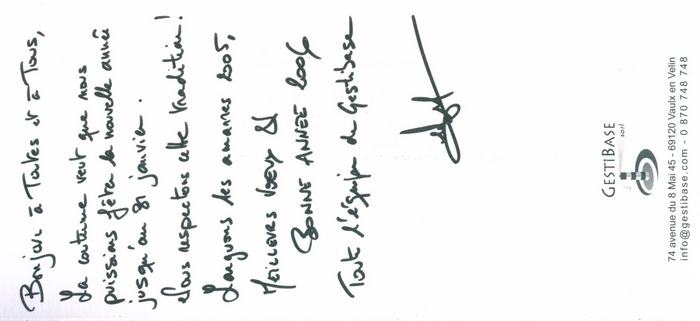 Bonjour à Toutes et à Tous,
La coutume veut que nous
puissions fêter la nouvelle année
jusqu'au 31 janvier.
Nous respectons cette tradition!
Larguons les amarres 2005,
MEILLEURS VOEUX Et
BONNE ANNÉE 2006
Tout l'équipe de Gestibase
GESTIBASE
sarl
74 avenue du 8 Mai 45 - 69120 Vaulx en Velin
info@gestibase.com - 0 870 748 748